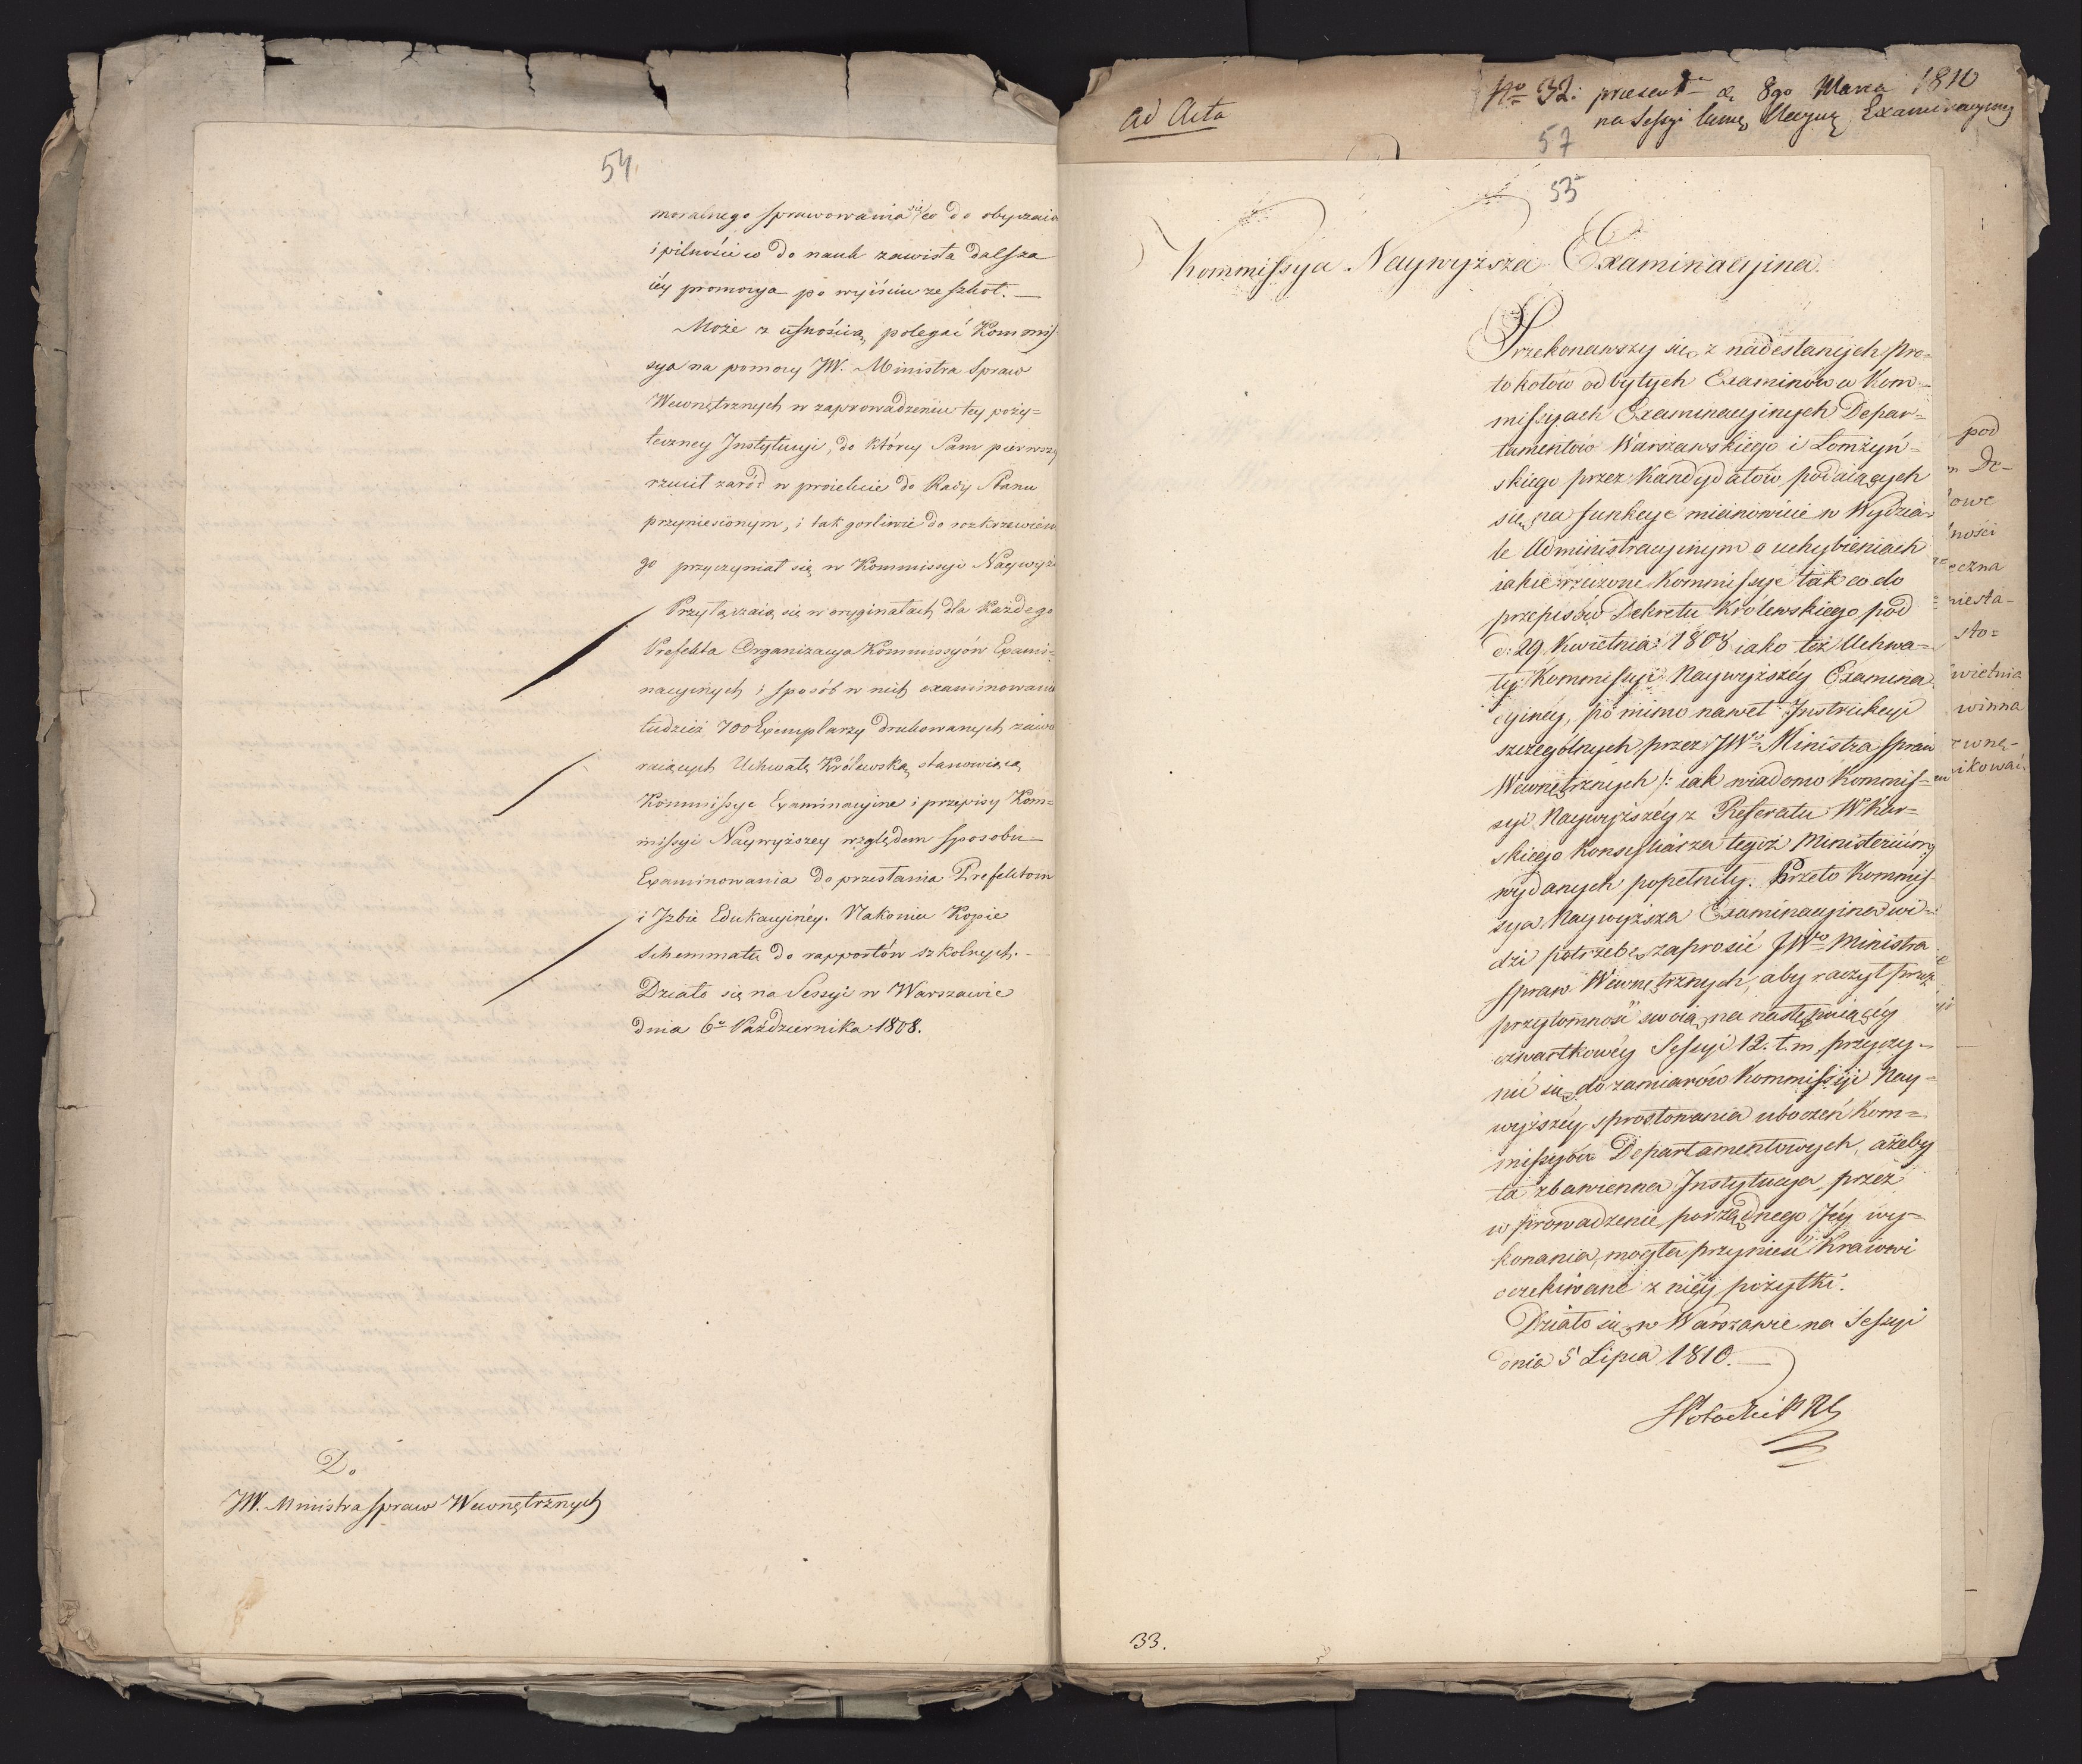 54.
moralnego sprawowania się co do obyczaio
i pilności co do nauk zawisła dalsza
iéy promocya po wyiściu ze szkoł. —
Może z ufnością polegać Kommis
sya na pomocy JW. Ministra Spraw
Wewnętrznych w zaprowadzeniu tey poży=
teczney Instytucyi, do którey Sam pierwszy
rzucił zaród w proiekcie do Rady Stanu
przyniesionym, i tak gorliwie do rozkrzewien
go przyczyniał się w Kommissyi Naywyż
Przyłączaią się w oryginałach dla Każdego
Prefekta Organizacya Kommissyów Exami=
nacyinych i sposób w nich examinowania
tudzież 700 Exemplarzy drukowanych zaiwo
raiących Uchwałę Królewską stanowiącą
Kommissye Examinacyine i przepisy Kom=
missyi Naywyższey względem sposobu
Examinowania do przesłania Prefektom
i Izbie Edukacyinéy. Nakoniec Kopie
Schemmatu do rapportów szkolnych. —
Działo się na Sessyi w Warszawie
dnia 6o Października 1808.
Do
JW. Ministra Spraw Wewnętrznych
ad Acta
No 32. praesent d. 8go Marca 1810
na Sessyi Examinacyiney
57
53
Kommissya Naywyższa Examinacyjna.
Przekonawszy się z nadesłanych Pro=
tokołów odbytych Examinów w Kom=
missyiach Examinacyinych Depar=
tamentów Warszawskiego i Łomżyń=
skiego przez Kandydatów podaiących
się na funkcye mianowicie w Wydzia=
le Administracyinym o uchybieniach
iakie rzeczone Kommissye tak co do
przepisów Dekretu Królewskiego pod
d: 29 Kwietnia 1808 iako też Uchwa=
ły Kommissyi Naywyższéy Examina
cyinéy, po mimo nawet Instrukcyi
szczególnych przez JWgo Ministra Spraw
Wewnętrznych /: iak wiadomo Kommis=
syi Naywyższéy z Referatu W Kar=
skiego Konsyliarza tegoż Ministerium:/
wydanych popełniły. Przeto Kommis=
sya Naywyższa Examinacyina wi=
dzi potrzebę zaprosić JWgo Ministra
Spraw Wewnętrznych, aby raczył przez
przytomność swoią na następuiącéy
czwartkowéy Sessyi 12. t. m. przyczy=
nić się do zamiarów Kommissyi Nay=
wyższéy sprostowania uboczeń Kom=
missyów Departamentowych, ażeby
ta zbawienna Instytucya, przez
wprowadzenie porządnego Jéy wy=
konania, mogła przynieść Kraiowi
oczekiwane z niéy pożytki.
Działo się w Warszawie na Sessyi
dnia 5 Lipca 1810. —
SPotocki
33.
pod
De-
owe
ności
eczna
niesta-
sto=
wietnia
winna
ewnę-
ikować